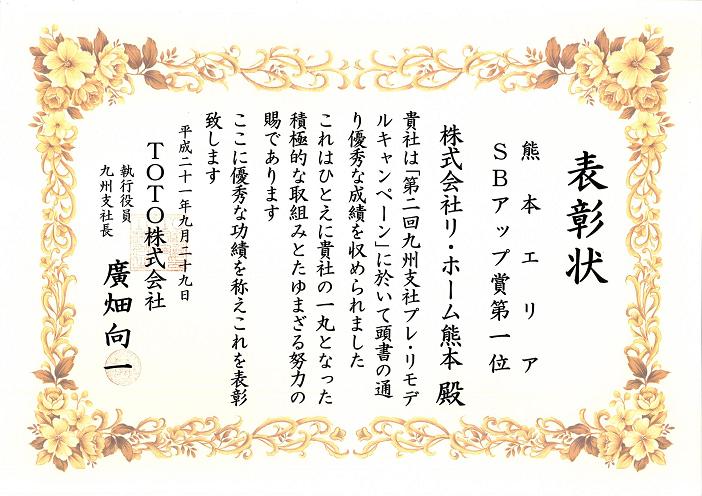 表彰状
熊本エリア
SBアップ賞第一位
株式会社リ・ホーム熊本 殿
貴社は「第二回九州支社プレ・リモデ
ルキャンペーン」に於いて頭書の通
り優秀な成績を収められました
これはひとえに貴社の一丸となった
積極的な取組みとたゆまざる努力の
賜であります
ここに優秀な功績を称えこれを表彰
致します
平成二十一年九月二十九日
TOTO株式会社
執行役員
九州支社長
廣畑向一